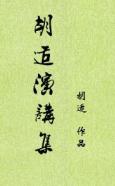 胡适演講集
胡适 作品